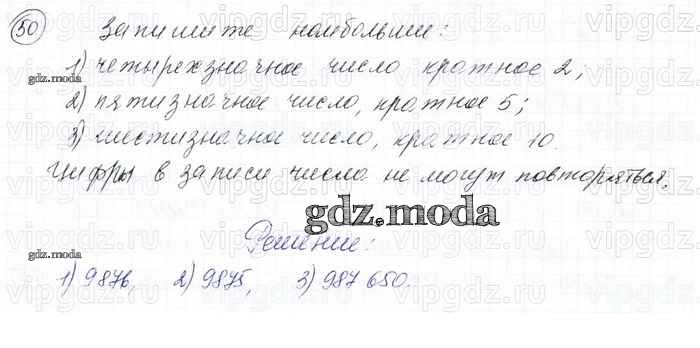 50 Запишите наибольшие:
1) четырехзначное число кратное 2;
gdz.moda
2) пятизначное число, кратное 5;
3) шестизначное число, кратное 10.
Цифры в записи числа не могут повторяться.
gdz.moda
Решение:
gdz.moda
1) 9876, 2) 9875, 3) 987 650.
vipgdz.ru